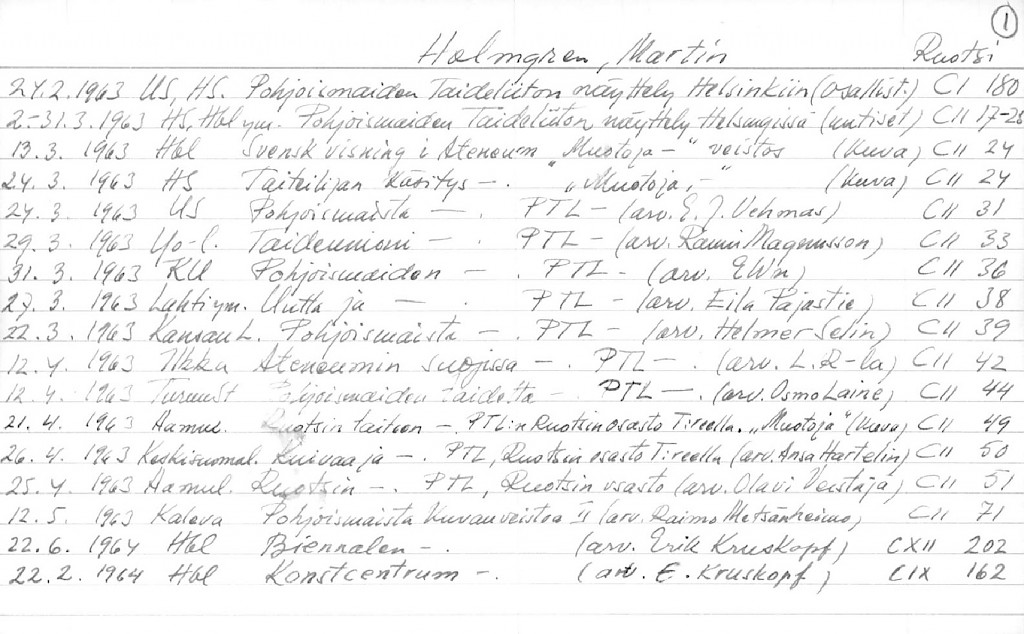 1
Holmgren, Martin Ruotsi
27.2.1963 US, HS. Pohjoismaiden Taideliiton näyttely Helsinkiin (osallist.) CI 180
2.-31.3.1963 HS, Hbl ym. Pohjoismaiden Taideliiton näyttely Helsingissä (uutiset) CII 17-28
13.3. 1963 Hbl Svensk visning i Ateneum "Muotoja-" veistos (kuva) CII 24
24.3. 1963 HS Taiteilijan käsitys -. "Muotoja,-" (kuva) CII 24
24.3. 1963 US Pohjoismaista -. PTL - (arv. E.J. Vehmas) CII 31
29.3. 1963 Yo-l. Taideunioni -. PTL - (arv. Rauni Magnusson) CII 33
31.3. 1963 KU Pohjoismaiden -. PTL - (arv. EWn) CII 36
27.3. 1963 Lahti ym. Uutta ja -. PTL - (arv. Eila Pajastie) CII 38
22.3. 1963 Kansan L. Pohjoismaista -. PTL - (arv. Helmer Selin) CII 39
12.4. 1963 Ilkka Ateneumin suojissa -. PTL -. (arv. L.R-la) CII 42
12.4. 1963 Turunst Pohjoismaiden taidetta -. PTL -. (arv. Osmo Laine) CII 44
21.4. 1963 Aamul. Ruotsin taiteen -. PTL:n Ruotsin osasto T:reella. "Muotoja" (kuva) CII 49
26.4. 1963 Keskisuomal. Kuivaa ja -. PTL, Ruotsin osasto T:reella (arv. Ansa Hartelin) CII 50
25.4. 1963 Aamul. Ruotsin -. PTL, Ruotsin osasto (arv. Olavi Veistäjä) CII 51
12.5. 1963 Kaleva Pohjoismaista kuvanveistoa II (arv. Raimo Metsänheimo) CII 71
22.6. 1964 Hbl Biennalen -. (arv. Erik Kruskopf) CXII 202
22.2. 1964 Hbl Konstcentrum -. (arv. E. Kruskopf) CIX 162